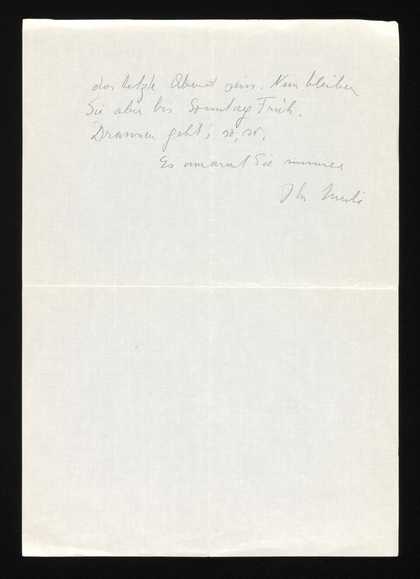 der letzte Abend sein. Nun bleiben
Sie aber bis Sonntag Früh.
Draussen geht's so, so.
Es umarmt Sie immer
Ihr